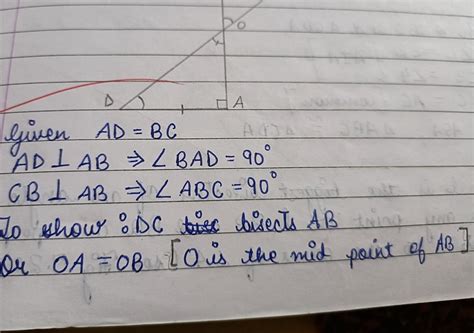 O
D
A
Given AD = BC
AD ⊥ AB ⇒ ∠BAD = 90°
CB ⊥ AB ⇒ ∠ABC = 90°
To show : DC bisects AB
Or OA = OB [O is the mid point of AB]